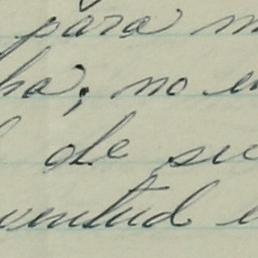 para m
ha; no en
de su
ventud e